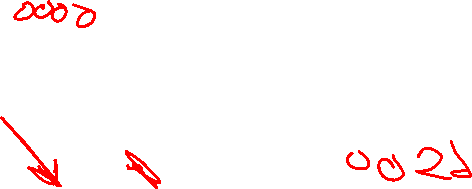 0000
002